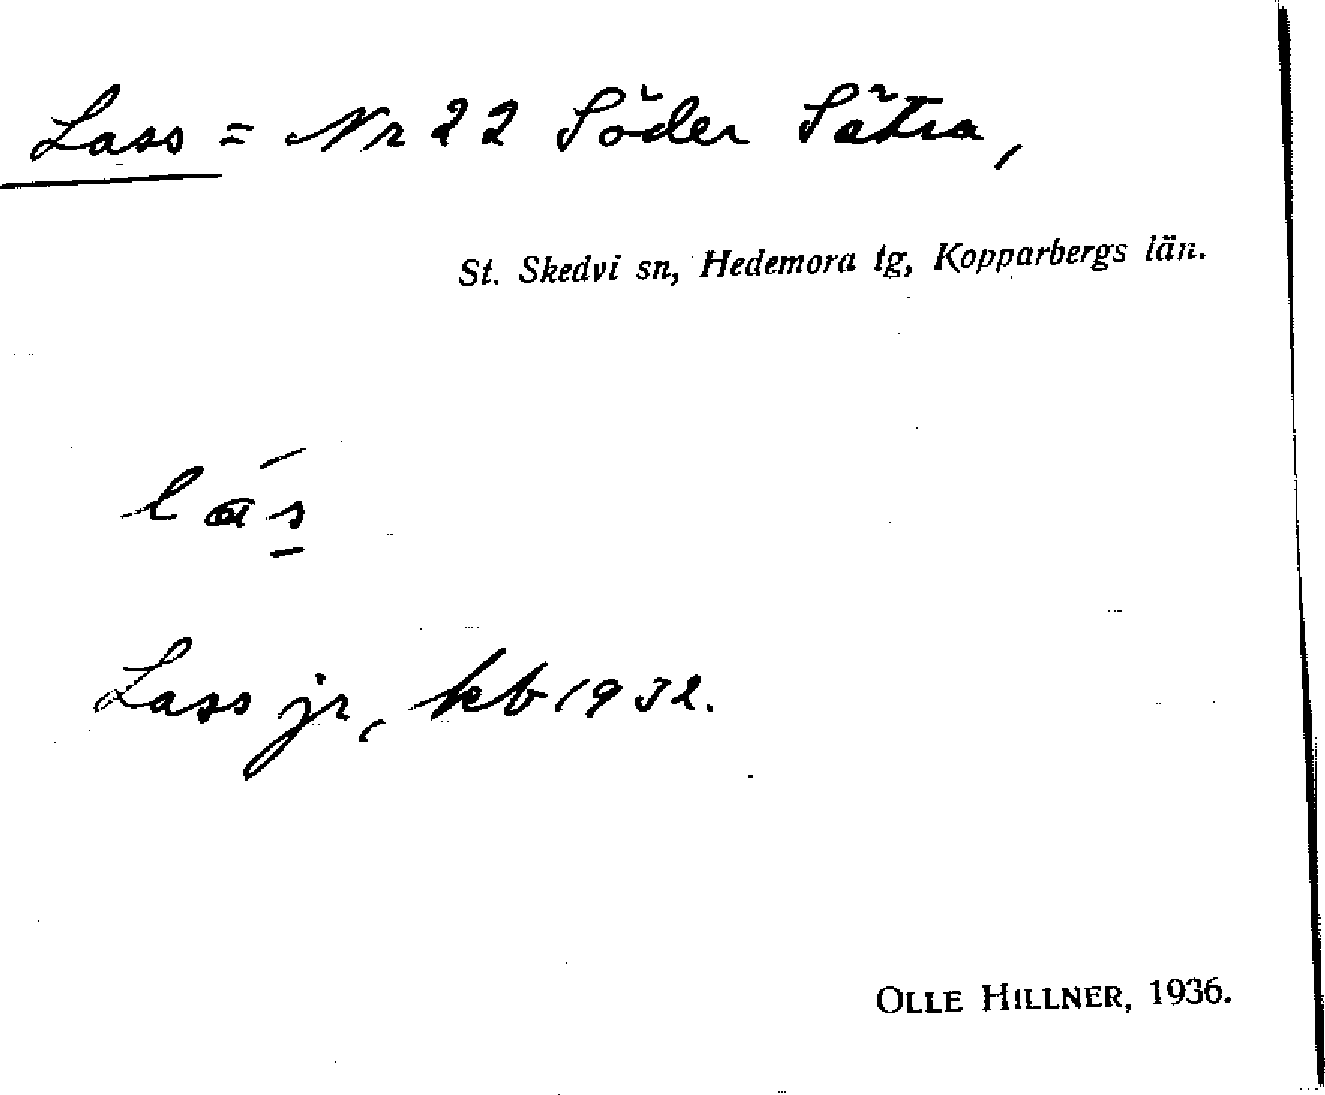 Lass = Nr 22 Söder Sätra,
St. Skedvi sn, Hedemora tg, Kopparbergs län.
las
Lass jr, kb 1932.
OLLE HILLNER, 1936.